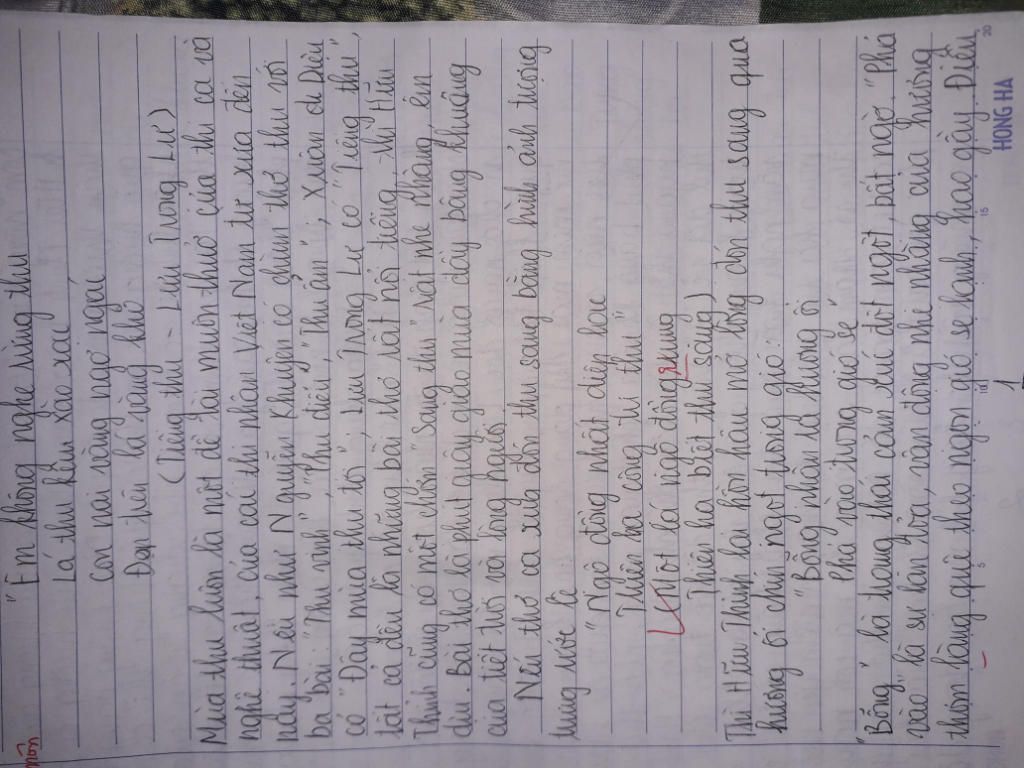 "Em không nghe rừng thu
Lá thu kêu xào xạc
Con nai vàng ngơ ngác
Đạp trên lá vàng khô"
(Tiếng thu - Lưu Trọng Lư)
Mùa thu luôn là một đề tài muôn thuở của thi ca và
nghệ thuật, của các thi nhân Việt Nam từ xưa đến
nay. Nếu như Nguyễn Khuyến có chùm thơ thu với
ba bài: "Thu vịnh", "Thu điếu", "Thu ẩm", Xuân Diệu
có "Đây mùa thu tới", Lưu Trọng Lư có "Tiếng thu",
tất cả đều là những bài thơ rất nổi tiếng, thì Hữu
Thỉnh cũng có một chốn "Sang thu" rất nhẹ nhàng, êm
dịu. Bài thơ là phút giây giao mùa đầy bâng khuâng
của tiết trời và lòng người.
Nếu thơ ca xưa đón thu sang bằng hình ảnh tượng
trưng ước lệ
"Ngô đồng nhất diệp lạc
Thiên hạ cộng tri thu"
(Một lá ngô đồng rụng
Thiên hạ biết thu sang)
Thì Hữu Thỉnh lại hồn hậu mở lòng đón thu sang qua
hương ổi chín ngọt trong gió:
"Bỗng nhận ra hương ổi
Phả vào trong gió se"
"Bỗng" là trạng thái cảm xúc đột ngột, bất ngờ. "Phả
vào" là sự lan tỏa, vận động nhẹ nhàng của hương
thôn làng quê theo ngọn gió se lạnh, hao gầy. Điều
1
HONG HA
5
10
15
20
môn